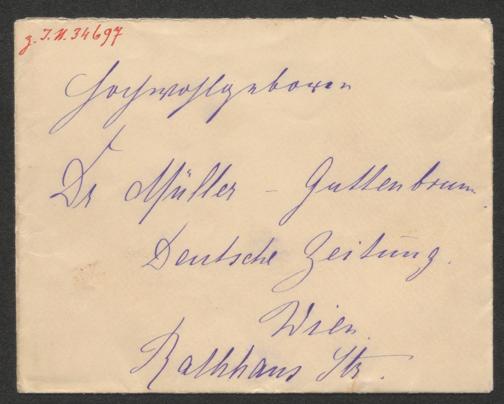 z. J. N. 34697
Hochwohlgeboren
Dr Müller - Guttenbrunn
Deutsche Zeitung.
Wien.
Rathhaus Str.